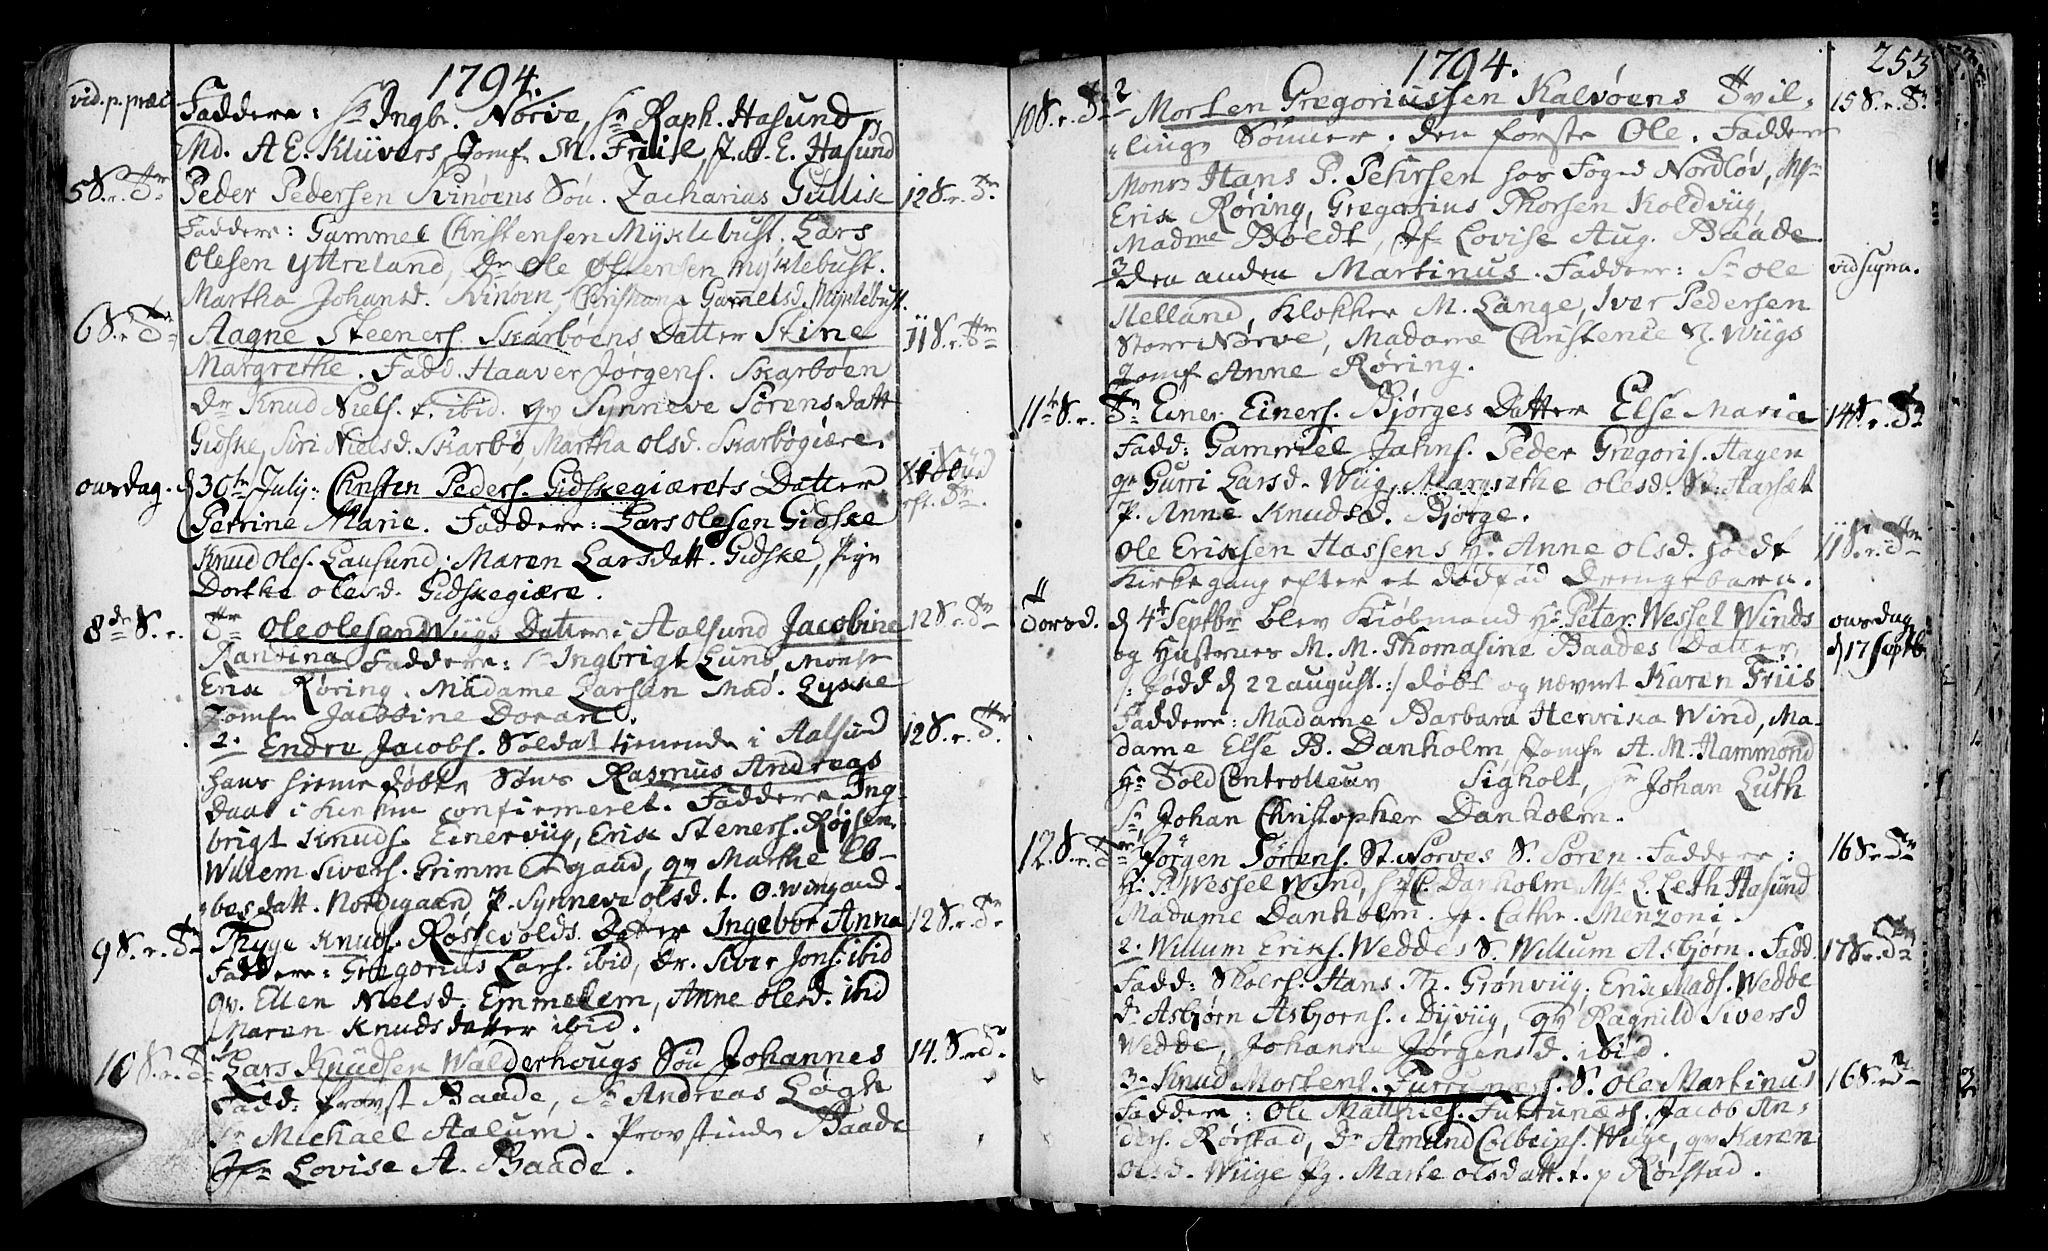 1794.
vid. p. præc.
Faddere: Sr Ingbr. Nørve, Sr Raph. Hasund
Md. A E. Klüvers, Jomf. M. Friis, J. A. E. Hasund
5 S. r. Tr.
Peder Pedersen Svinøens Søn. Zacharias Gullik
12 S. r. Tr.
Faddere: Gammel Christensen Myklebust. Lars
Olesen Yttreland, Dr Ole Østensen Myklebust.
Martha Johansd. Svinøen, Christiana Gamelsd. Myklebust.
6 S. r. Tr.
Aagne Steeners. Skarbøens Datter Stine
11 S. r. Tr
Margrethe. Fadd. Haaver Jørgens. Skarbøen
Dr Knud Niels. t. ibid. qv Synneve Sørensdatt
Gidske, Siri Nielsd. Skarbø, Martha Olsd. Skarbøgiære.
onsdag.
d 30te July: Christen Peders. Gidskegiærets Datter
eft. Tr.
Petrine Marie. Faddere: Lars Olesen Gidske
Knud Oles. Lausund, Maren Larsdatt. Gidske, Pige
Dorthe Olesd. Gidskegiære.
8de S. r.
Tr Ole Olesen Wiigs Datter i Aalsund Jacobine
12 S. r. Tr
Rantina Faddere: Sr Ingbrigt Lund, Monsr
Erik Røring. Madame Larsen Mad. Lyske
Jomfr Jacobine Doran.
2. Endre Jacobs. Soldat tienende i Aalsund
12 S. r. Tr.
hans hiemedøbte Søns Rasmus Andreas
Daab i Kirken confirmeret. Faddere Ing-
brigt Knuds. Einerviig, Erik Steners. Røjsen.
Willem Sivers. Grimmergaard, qv Marthe Eb-
besdatt. Nordigaard P. Synneve Olsd. t. O. Wingaard.
9 S. r. Tr
Thyge Knuds. Røssevolds Datter Ingebor Anna
12 S. r. Tr.
Faddere: Gregorius Lars. ibid, Dr. Siver Jons. ibid
qv. Ellen Nielsd. Emmelem, Anne Olesd. ibid
Maren Knudsdatter ibid.
10 S. r. Tr
Lars Knudsen Walderhougs Søn Johannes
14. S. r. Tr.
Fadd: Provst Baade, Sr Andreas Løgh
Sr Michael Aalum. Provstinde Baade
Jfr Lovise A. Baade.
1794.
253
10 S. r. Tr
2 Morten Gregoriussen Kalvøens Tvil-
15 S. r. Tr
lings Sønner. den første Ole. Faddere
Monsr Hans P. Petersen hos Foged Nordløv, Msr
Erik Røring, Gregorius Thorsen Koldviig,
Madme Boldt, Jfr Lovise Aug. Baade
3 den anden Martinus. Faddere: Sr Ole
vid supra.
Helland, Klokker M. Lange, Iver Pedersen
Store Nørve, Madame Christence N. Wiigs
Jomfr Anne Røring.
11te S. r.
Tr Einer Einers. Bjørges Datter Else Maria
14 S. r. Tr
Fadd: Gammel Jahns. Peder Gregoris. Hagen
qv Gurri Larsd. Wiig, Margrethe Olesd. St. Harsæt
P. Anne Knudsd. Bjørge.
Ole Eriksen Hassens Ha Anne Olsd. holdt
11 S. r. Tr
Kirkegang efter et dødfød Drengebarn.
Torsd.
d 4t Septbr blev Kiøbmand Hr Peter Wessel Winds
onsdag
og Hustrues M. M. Thomasine Baades Datter,
d 17 Septb.
/: fødd d 22 august. :/ døbt og nævnt Karen Friis
Faddere: Madame Barbara Henrika Wind, Ma-
dame Else B. Danholm Jomfr A. M. Hammond
Hr Told Controlleur Sigholt, Sr Johan Luth
Sr Johan Christopher Danholm.
12. S. r. Tr
Jørgen Sørens. St. Nørves S. Søren. Faddere:
16 S. r. Tr
Hr P. Wessel Wind, Danholm Msr L. Leth Hasund
Madame Danholm. Jr. Cathr. Menzoni.
2. Willum Eriks. Weddes S. Willum Asbjørn. Fadd.
17 S. r. Tr
Fadd: Skolers. Hans Th. Grønviig. Erik Mads. Wedde
Dr Asbjørn Asbjørns. Dyviig, qv Ragnild Siversd
Wedde, Johanna Jørgensd. ibid.
3. Knud Mortens. Furrunæss. S. Ole Martinus
16 S. r. Tr
Faddere: Ole Matthies. Furrunæss. Jacob An-
ders. Rørstad, Dr Amund Colbeins. Wiige, qv Karen
Olsd. Wiige Pg. Marte Olsdatt. t. p Rørstad.
2